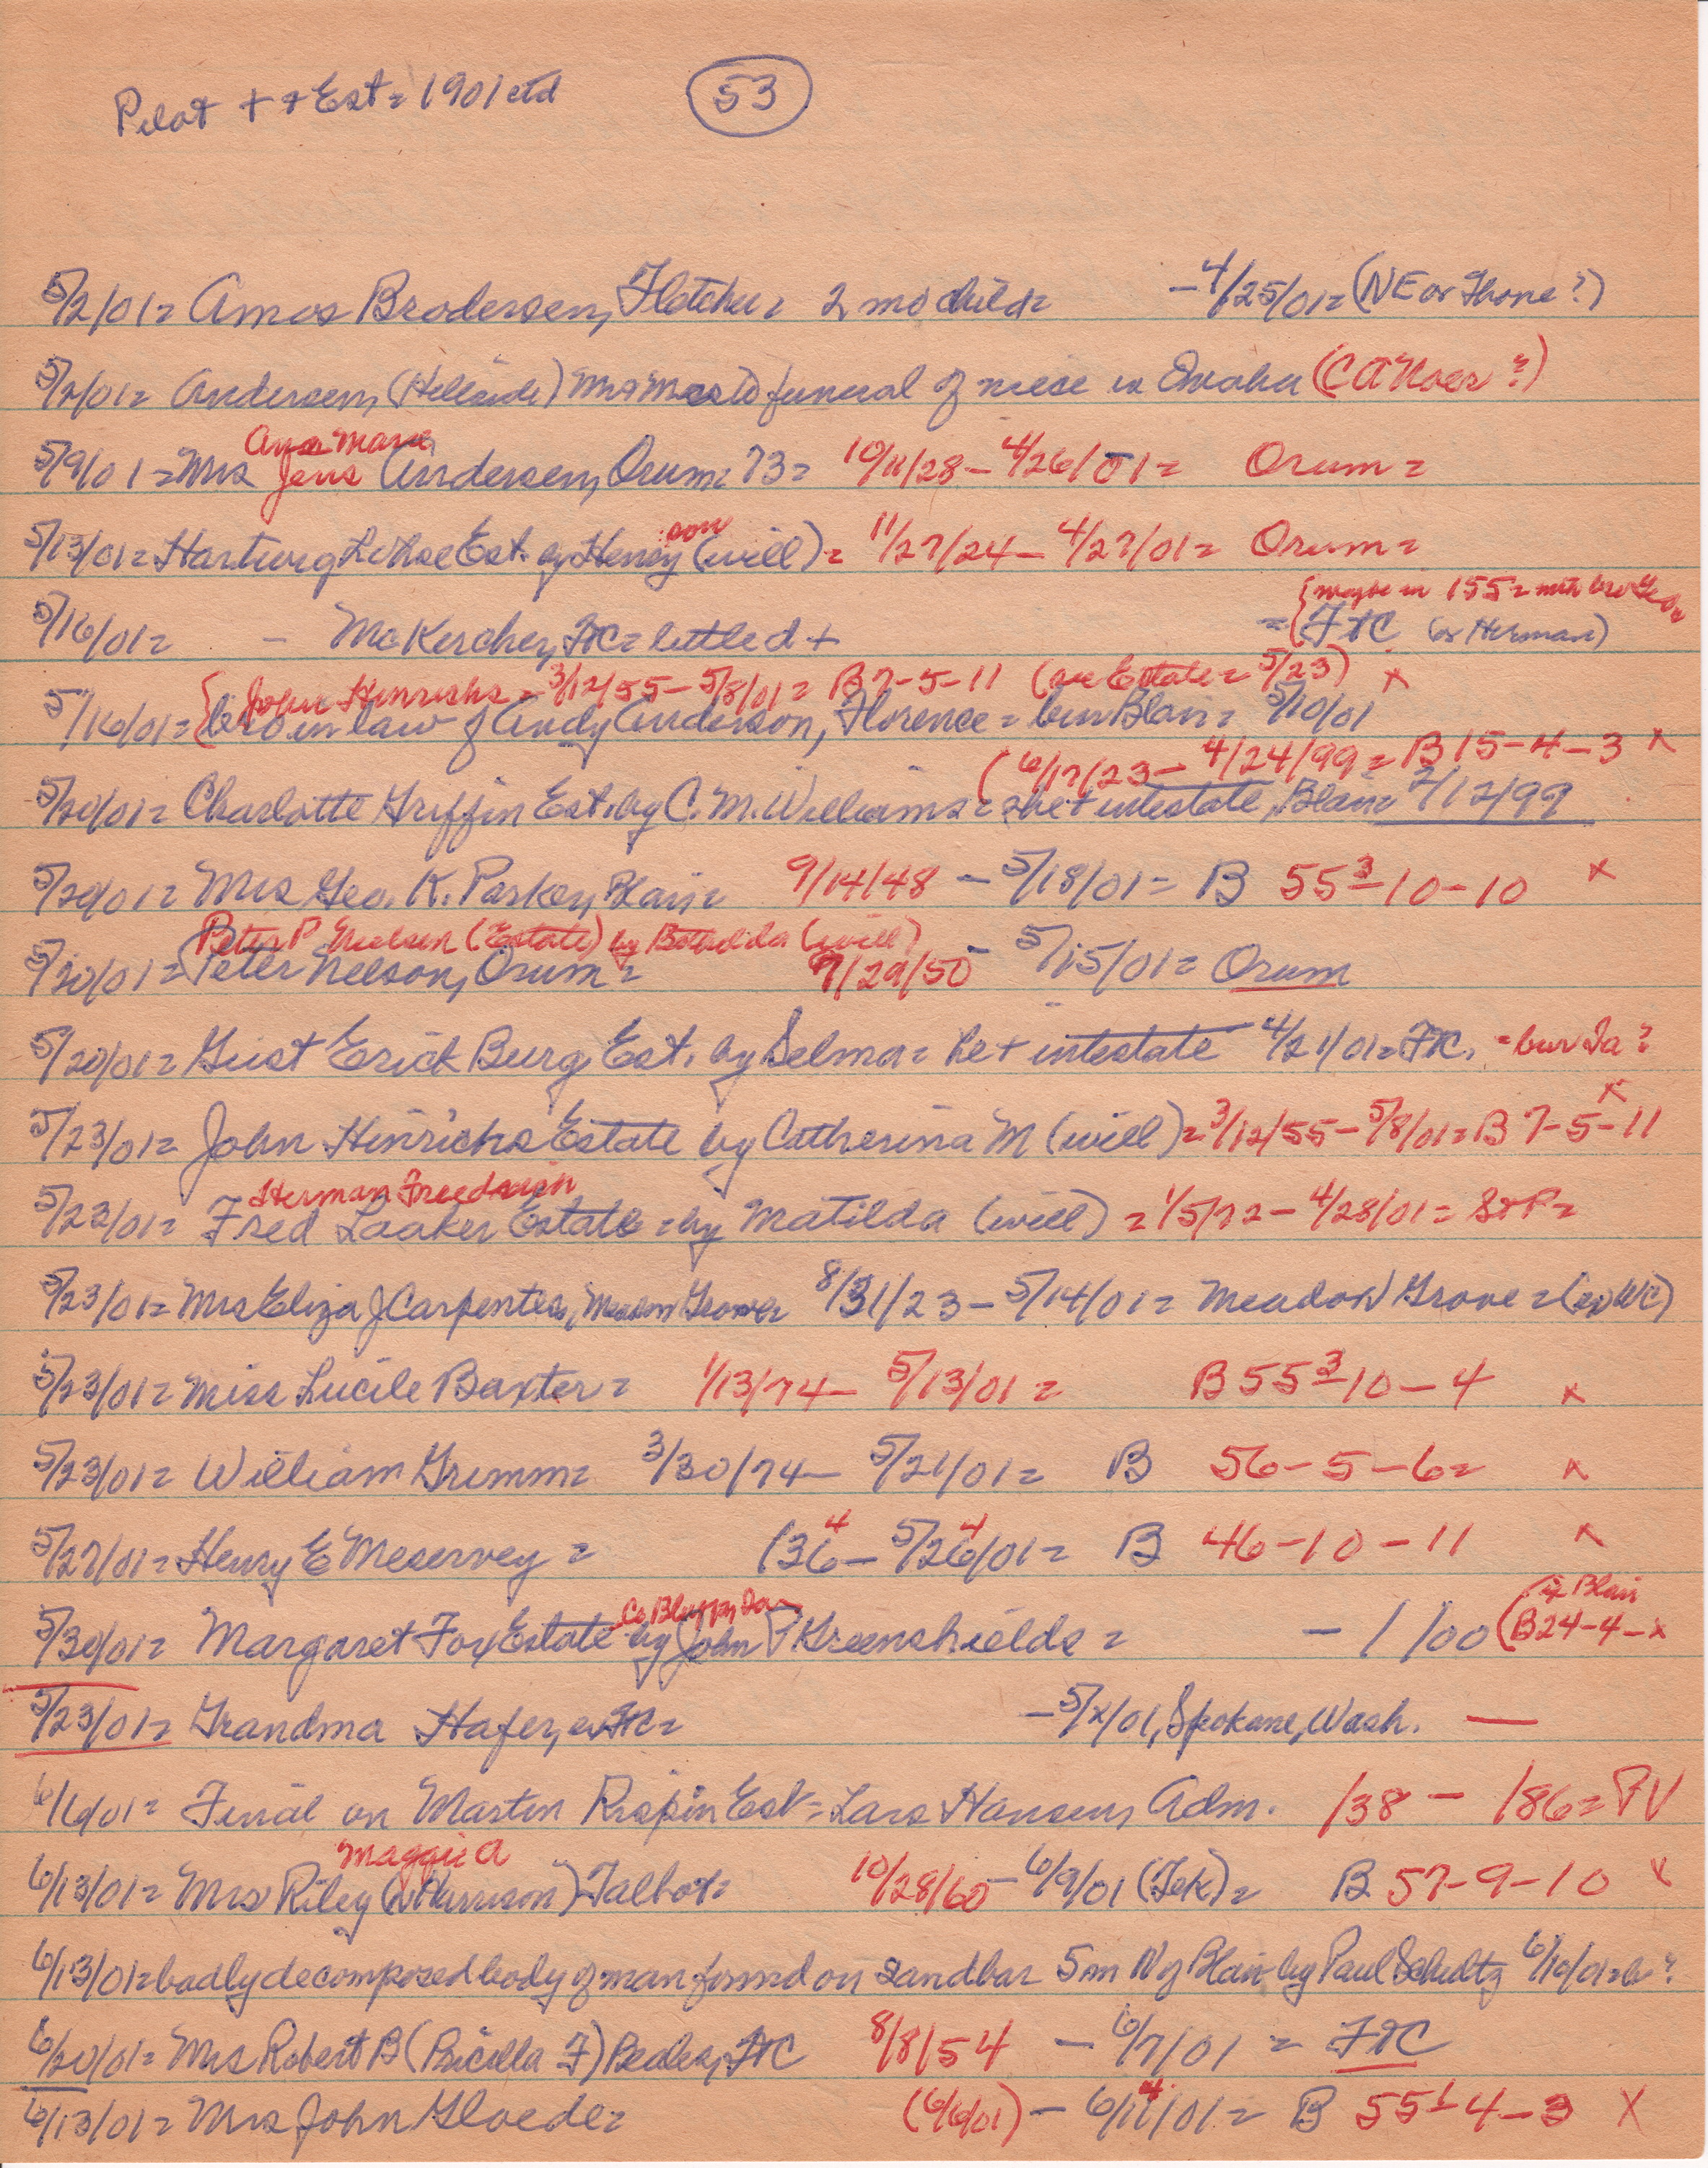 Pilot + + Est = 1901 ctd (53)
5/2/01 = Amos Brodersen, Fletcher = 2 mo child = - 4/25/01 = (NE or Thone?)
5/2/01 = Andersen, (Hillside) Mr + Mrs to funeral of niece in Omaha (CA Noer?)
Ana Marie
5/9/01 = Mrs Jens Andersen, Orum = 73 = 10/11/28 - 4/26/01 = Orum =
son
5/13/01 = Hartwig Lohse Est. by Henry (will) = 11/27/24 - 4/27/01 = Orum =
{maybe in 155 = with bro Geo
5/16/01 = - McKercher, FtC = little d + = {FtC (or Herman)
{John Hinrichs = 3/12/55 - 5/8/01 = B 7-5-11 (see Estate = 5/23) x
5/16/01 = {bro in law of Andy Anderson, Florence = bur Blair = 5/10/01
(6/17/23 - 4/24/99 = B 15-4-3 x
5/20/01 = Charlotte Griffin Est. by C. M. Williams = she + intestate, Blair 2/12/99
5/20/01 = Mrs Geo. K. Parker, Blair = 9/14/48 - 5/18/01 = B 55³-10-10 x
Peter P Nielsen (Estate) by Bothilda (will)
5/20/01 = Peter Nelson, Orum = 9/29/50 - 5/15/01 = Orum
5/20/01 = Gust Erick Burg Est. by Selma = he + intestate 4/21/01 = FtC. = bur Ia?
x
5/23/01 = John Hinrichs Estate by Catherina M (will) = 3/12/55 - 5/8/01 = B 7-5-11
Herman Friedrich
5/23/01 = Fred Laaker Estate = by Matilda (will) = 1/5/72 - 4/28/01 = St P =
5/23/01 = Mrs Eliza J Carpenter, Meadow Grove 8/31/23 - 5/14/01 = Meadow Grove = (ex WC)
5/23/01 = Miss Lucile Baxter = 1/13/74 - 5/13/01 = B 55³-10-4 x
5/23/01 = William Grimm = 3/30/74 - 5/21/01 = B 56-5-6 = x
4 4
5/27/01 = Henry E Meservey = /36 - 5/26/01 = B 46-10-11 x
Co Bluffs, Ia if Blair
5/30/01 = Margaret Fox Estate by John P Greenshields = - / /00 (B 24-4-x
5/23/01 = Grandma Hafer, ex FtC = - 5/x/01, Spokane, Wash. —
6/6/01 = Final on Martin Rispin Est = Lars Hansen, Adm. /38 - /86 = PV
Maggie A
6/13/01 = Mrs Riley (n Harrison) Talbot = 10/28/60 - 6/9/01 (Tek) = B 57-9-10 x
6/13/01 = badly decomposed body of man found on sandbar 5m N of Blair by Paul Schultz 6/10/01 = b?
6/20/01 = Mrs Robert B (Pricilla F) Beales, FtC 8/8/54 - 6/7/01 = FtC
4
6/13/01 = Mrs John Gloede = (6/6/01) - 6/11/01 = B 55¹-4-3 X